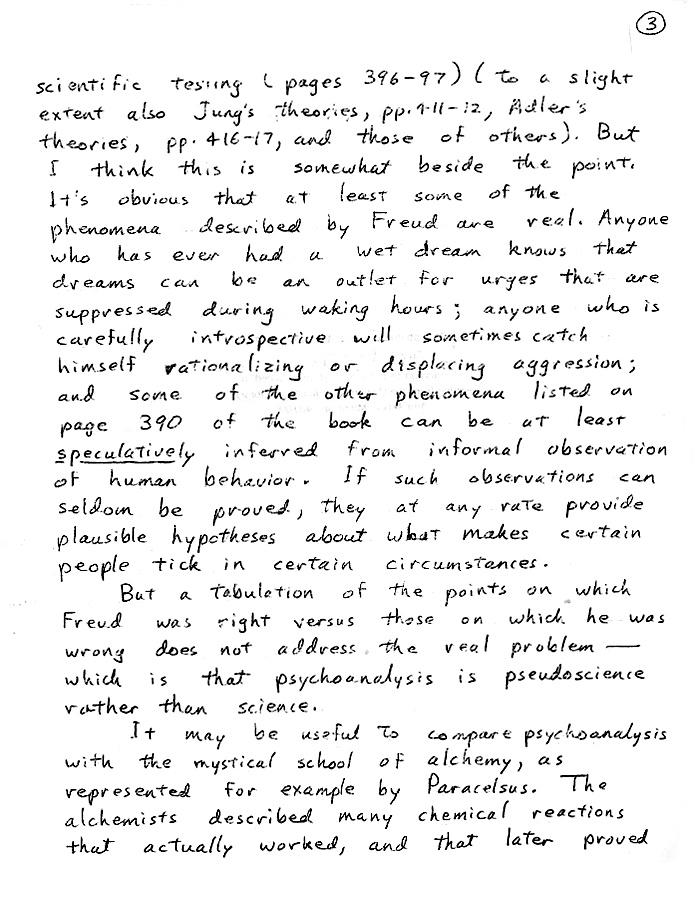 3
scientific testing (pages 396-97) (to a slight
extent also Jung's theories, pp. 411-12, Adler's
theories, pp. 416-17, and those of others). But
I think this is somewhat beside the point.
It's obvious that at least some of the
phenomena described by Freud are real. Anyone
who has ever had a wet dream knows that
dreams can be an outlet for urges that are
suppressed during waking hours; anyone who is
carefully introspective will sometimes catch
himself rationalizing or displacing aggression;
and some of the other phenomena listed on
page 390 of the book can be at least
speculatively inferred from informal observation
of human behavior. If such observations can
seldom be proved, they at any rate provide
plausible hypotheses about what makes certain
people tick in certain circumstances.
But a tabulation of the points on which
Freud was right versus those on which he was
wrong does not address the real problem —
which is that psychoanalysis is pseudoscience
rather than science.
It may be useful to compare psychoanalysis
with the mystical school of alchemy, as
represented for example by Paracelsus. The
alchemists described many chemical reactions
that actually worked, and that later proved